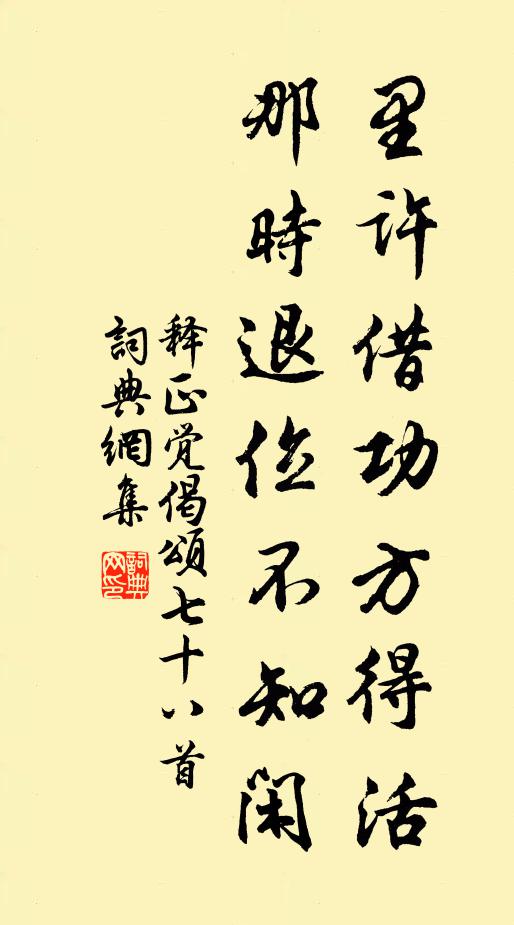 里许借功方得活
那時退位不知閑
释正觉偈頌七十八首
詞典網集
詞典网印